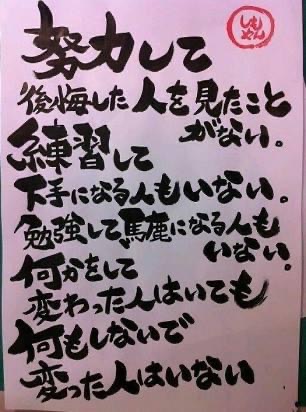 努力して
後悔した人を見たこと
がない。
練習して
下手になる人もいない。
勉強して馬鹿になる人も
いない。
何かをして
変わった人はいても
何もしないで
変った人はいない